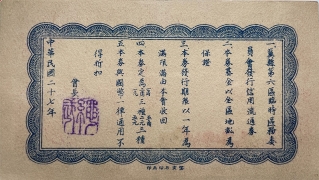 一冀縣第六區臨時區務委
員會發行信用流通券
二本券基金以全區地畝為
保證
三本券發行期限以一年為
滿限滿由本會收回
四本券定為 三種
五本券與國幣一律通用不
得折扣
會長
中華民國二十七年